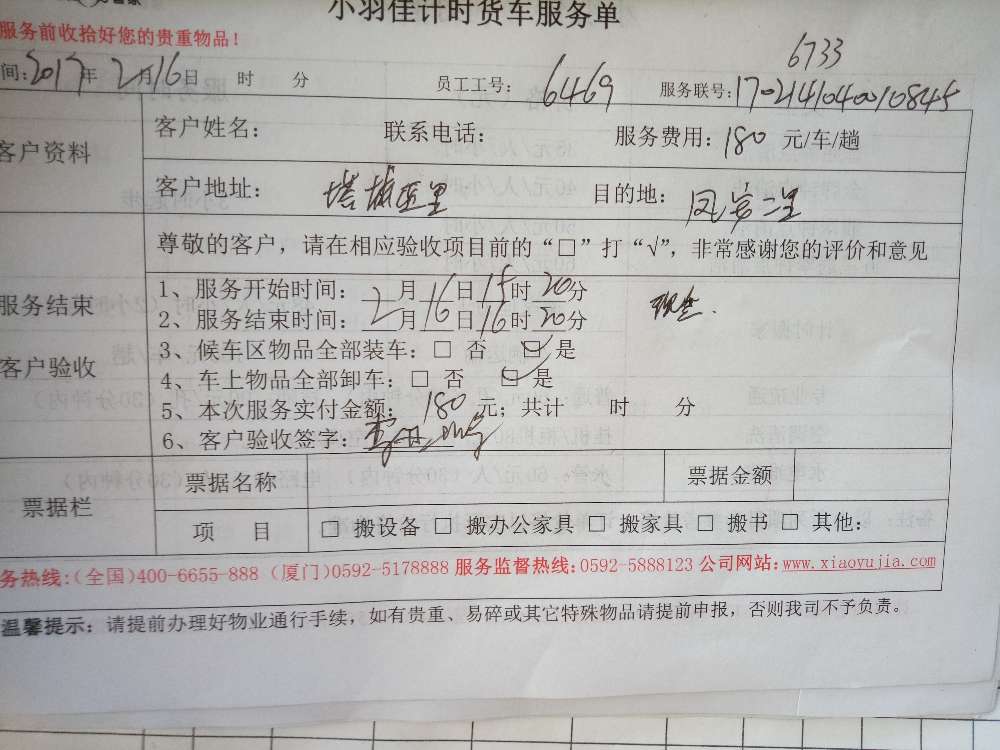 小羽佳计时货车服务单
服务前收拾好您的贵重物品！
6733
间：2017年 2月16日 时 分 员工工号： 6469 服务联号：1702141040010845
客户资料 客户姓名： 联系电话： 服务费用：180 元/车/趟
客户地址： 塔埔 里 目的地： 二里
尊敬的客户，请在相应验收项目前的“□”打“√”，非常感谢您的评价和意见
服务结束
客户验收
1、服务开始时间：2月16日15时20分 现金.
2、服务结束时间：2月16日16时20分
3、候车区物品全部装车：□ 否 ☑ 是
4、车上物品全部卸车：□ 否 ☑ 是
5、本次服务实付金额：180 元；共计 时 分
6、客户验收签字：
票据栏 票据名称 票据金额
项 目 □ 搬设备 □ 搬办公家具 □ 搬家具 □ 搬书 □ 其他：
务热线：（全国）400-6655-888（厦门）0592-5178888 服务监督热线：0592-5888123 公司网站：www.xiaoyujia.com
温馨提示：请提前办理好物业通行手续，如有贵重、易碎或其它特殊物品请提前申报，否则我司不予负责。